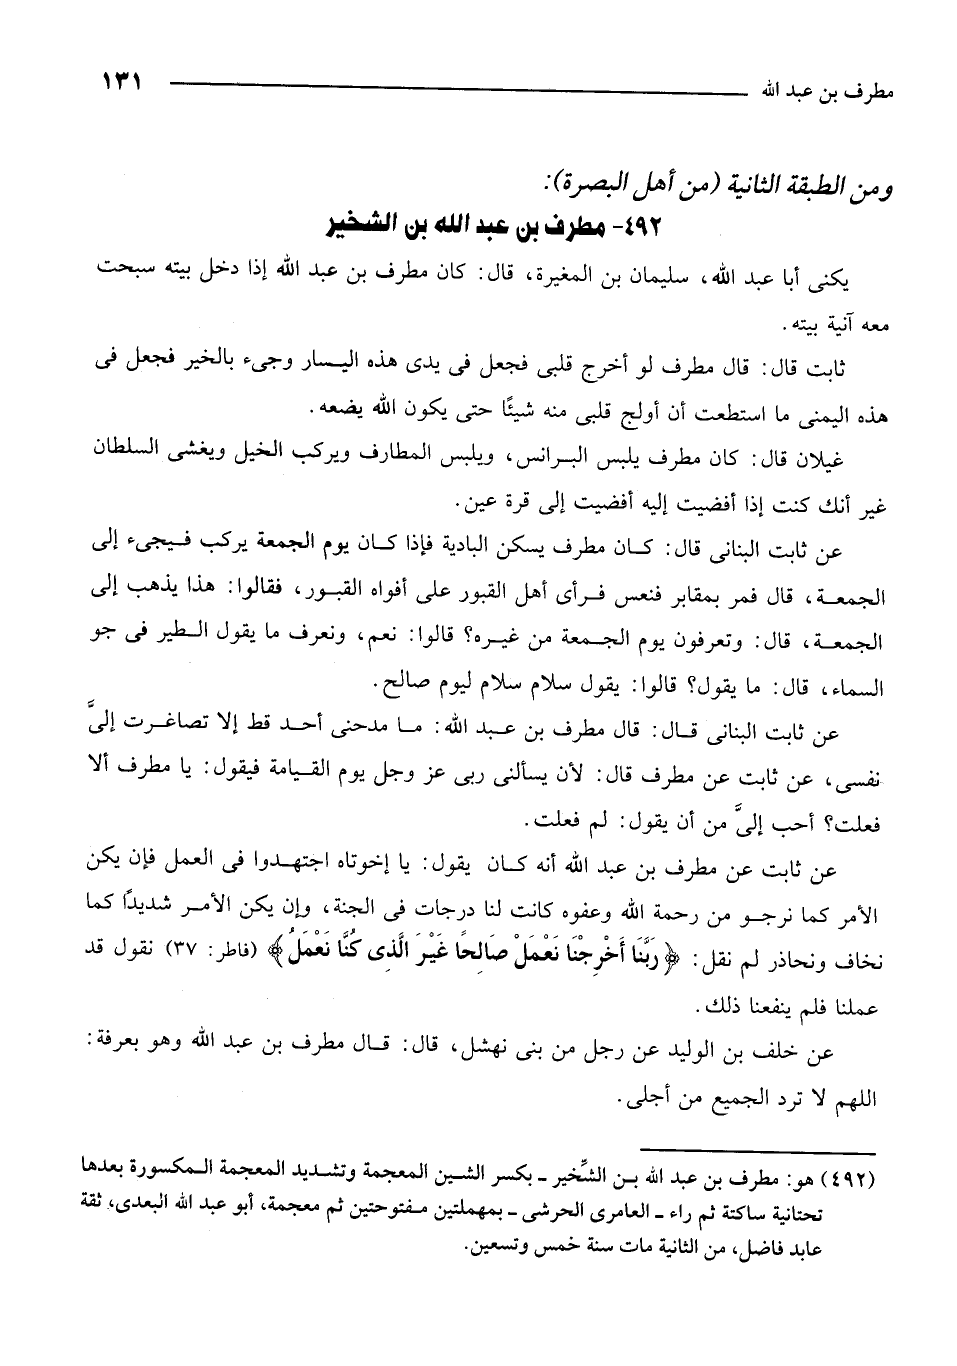 مطرف بن عبد الله ١٣١
ومن الطبقة الثانية (من أهل البصرة):
٤٩٢- مطرف بن عبد الله بن الشخير
يكنى أبا عبد الله، سليمان بن المغيرة، قال: كان مطرف بن عبد الله إذا دخل بيته سبحت
معه آنية بيته.
ثابت قال: قال مطرف لو أخرج قلبى فجعل فى يدى هذه اليسار وجىء بالخير فجعل فى
هذه اليمنى ما استطعت أن أولج قلبى منه شيئًا حتى يكون الله يضعه.
غيلان قال: كان مطرف يلبس البرانس، ويلبس المطارف ويركب الخيل ويغشى السلطان
غير أنك كنت إذا أفضيت إليه أفضيت إلى قرة عين.
عن ثابت البنانى قال: كان مطرف يسكن البادية فإذا كان يوم الجمعة يركب فيجىء إلى
الجمعة، قال فمر بمقابر فنعس فرأى أهل القبور على أفواه القبور، فقالوا: هذا يذهب إلى
الجمعة، قال: وتعرفون يوم الجمعة من غيره؟ قالوا: نعم، ونعرف ما يقول الطير فى جو
السماء، قال: ما يقول؟ قالوا: يقول سلام سلام ليوم صالح.
عن ثابت البنانى قال: قال مطرف بن عبد الله: ما مدحنى أحد قط إلا تصاغرت إلىَّ
نفسى، عن ثابت عن مطرف قال: لأن يسألنى ربى عز وجل يوم القيامة فيقول: يا مطرف ألا
فعلت؟ أحب إلىَّ من أن يقول: لم فعلت.
عن ثابت عن مطرف بن عبد الله أنه كان يقول: يا إخوتاه اجتهدوا فى العمل فإن يكن
الأمر كما نرجو من رحمة الله وعفوه كانت لنا درجات فى الجنة، وإن يكن الأمر شديدًا كما
نخاف ونحاذر لم نقل: ﴿رَبَّنَا أَخْرِجْنَا نَعْمَلْ صَالِحًا غَيْرَ الَّذِى كُنَّا نَعْمَلُ﴾ (فاطر: ٣٧) نقول قد
عملنا فلم ينفعنا ذلك.
عن خلف بن الوليد عن رجل من بنى نهشل، قال: قال مطرف بن عبد الله وهو بعرفة:
اللهم لا ترد الجميع من أجلى.
(٤٩٢) هو: مطرف بن عبد الله بن الشِّخير ـ بكسر الشين المعجمة وتشديد المعجمة المكسورة بعدها
تحتانية ساكتة ثم راء ـ العامرى الحرشى ـ بمهملتين مفتوحتين ثم معجمة، أبو عبد الله البعدى، ثقة
عابد فاضل، من الثانية مات سنة خمس وتسعين.